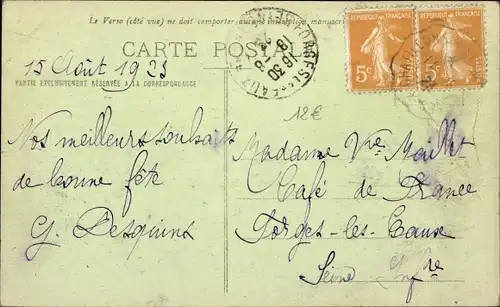 Le Verso (côté vue) ne doit comporter aucune inscription manuscri
CARTE POS
15 Août 1923
PARTIE EXCLUSIVEMENT RÉSERVÉE A LA CORRESPONDANCE
16 30
RÉPUBLIQUE FRANÇAISE
5c
RÉPUBLIQUE FRANÇAISE
12€
Nos meilleurs souhaits
de bonne fête
G. Desquins
Madame Vve Maillet
Café de France
Forges-les-Eaux
Seine Infre